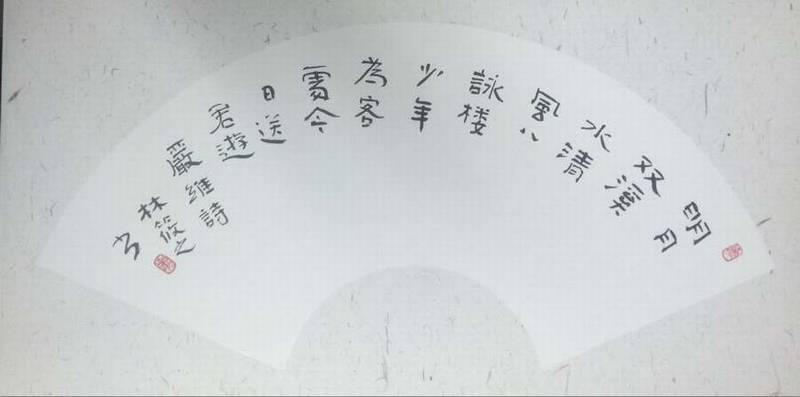 明月
双溪
水清
風八
詠楼
少年
為客
處今
日送
君遊
嚴維詩
林筱之
书